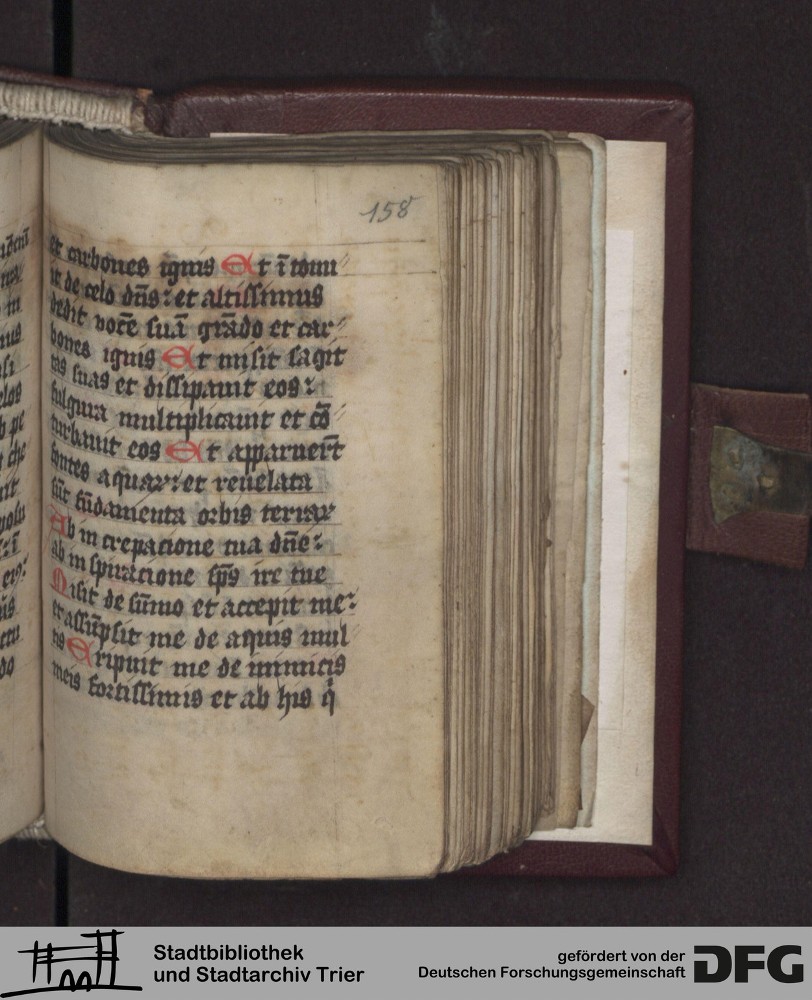 158
et carbones ignis Et ītonu
it de celo dn̄s: et altissimus
dedit vocē suā grādo et car
bones ignis Et misit sagit
tas suas et dissipauit eos:
fulgura multiplicauit et cō
turbauit eos Et apparuer̄t
fontes aquar: et reuelata
sūt fūdamenta orbis terrar
Ab increpacione tua dn̄e:
ab inspiracione sp̄s ire tue
Misit de sūmo et accepit me:
et assūpsit me de aquis mul
tis Eripuit me de inimicis
meis fortissimis et ab his q̄
Stadtbibliothek
und Stadtarchiv Trier
gefördert von der
Deutschen Forschungsgemeinschaft
DFG